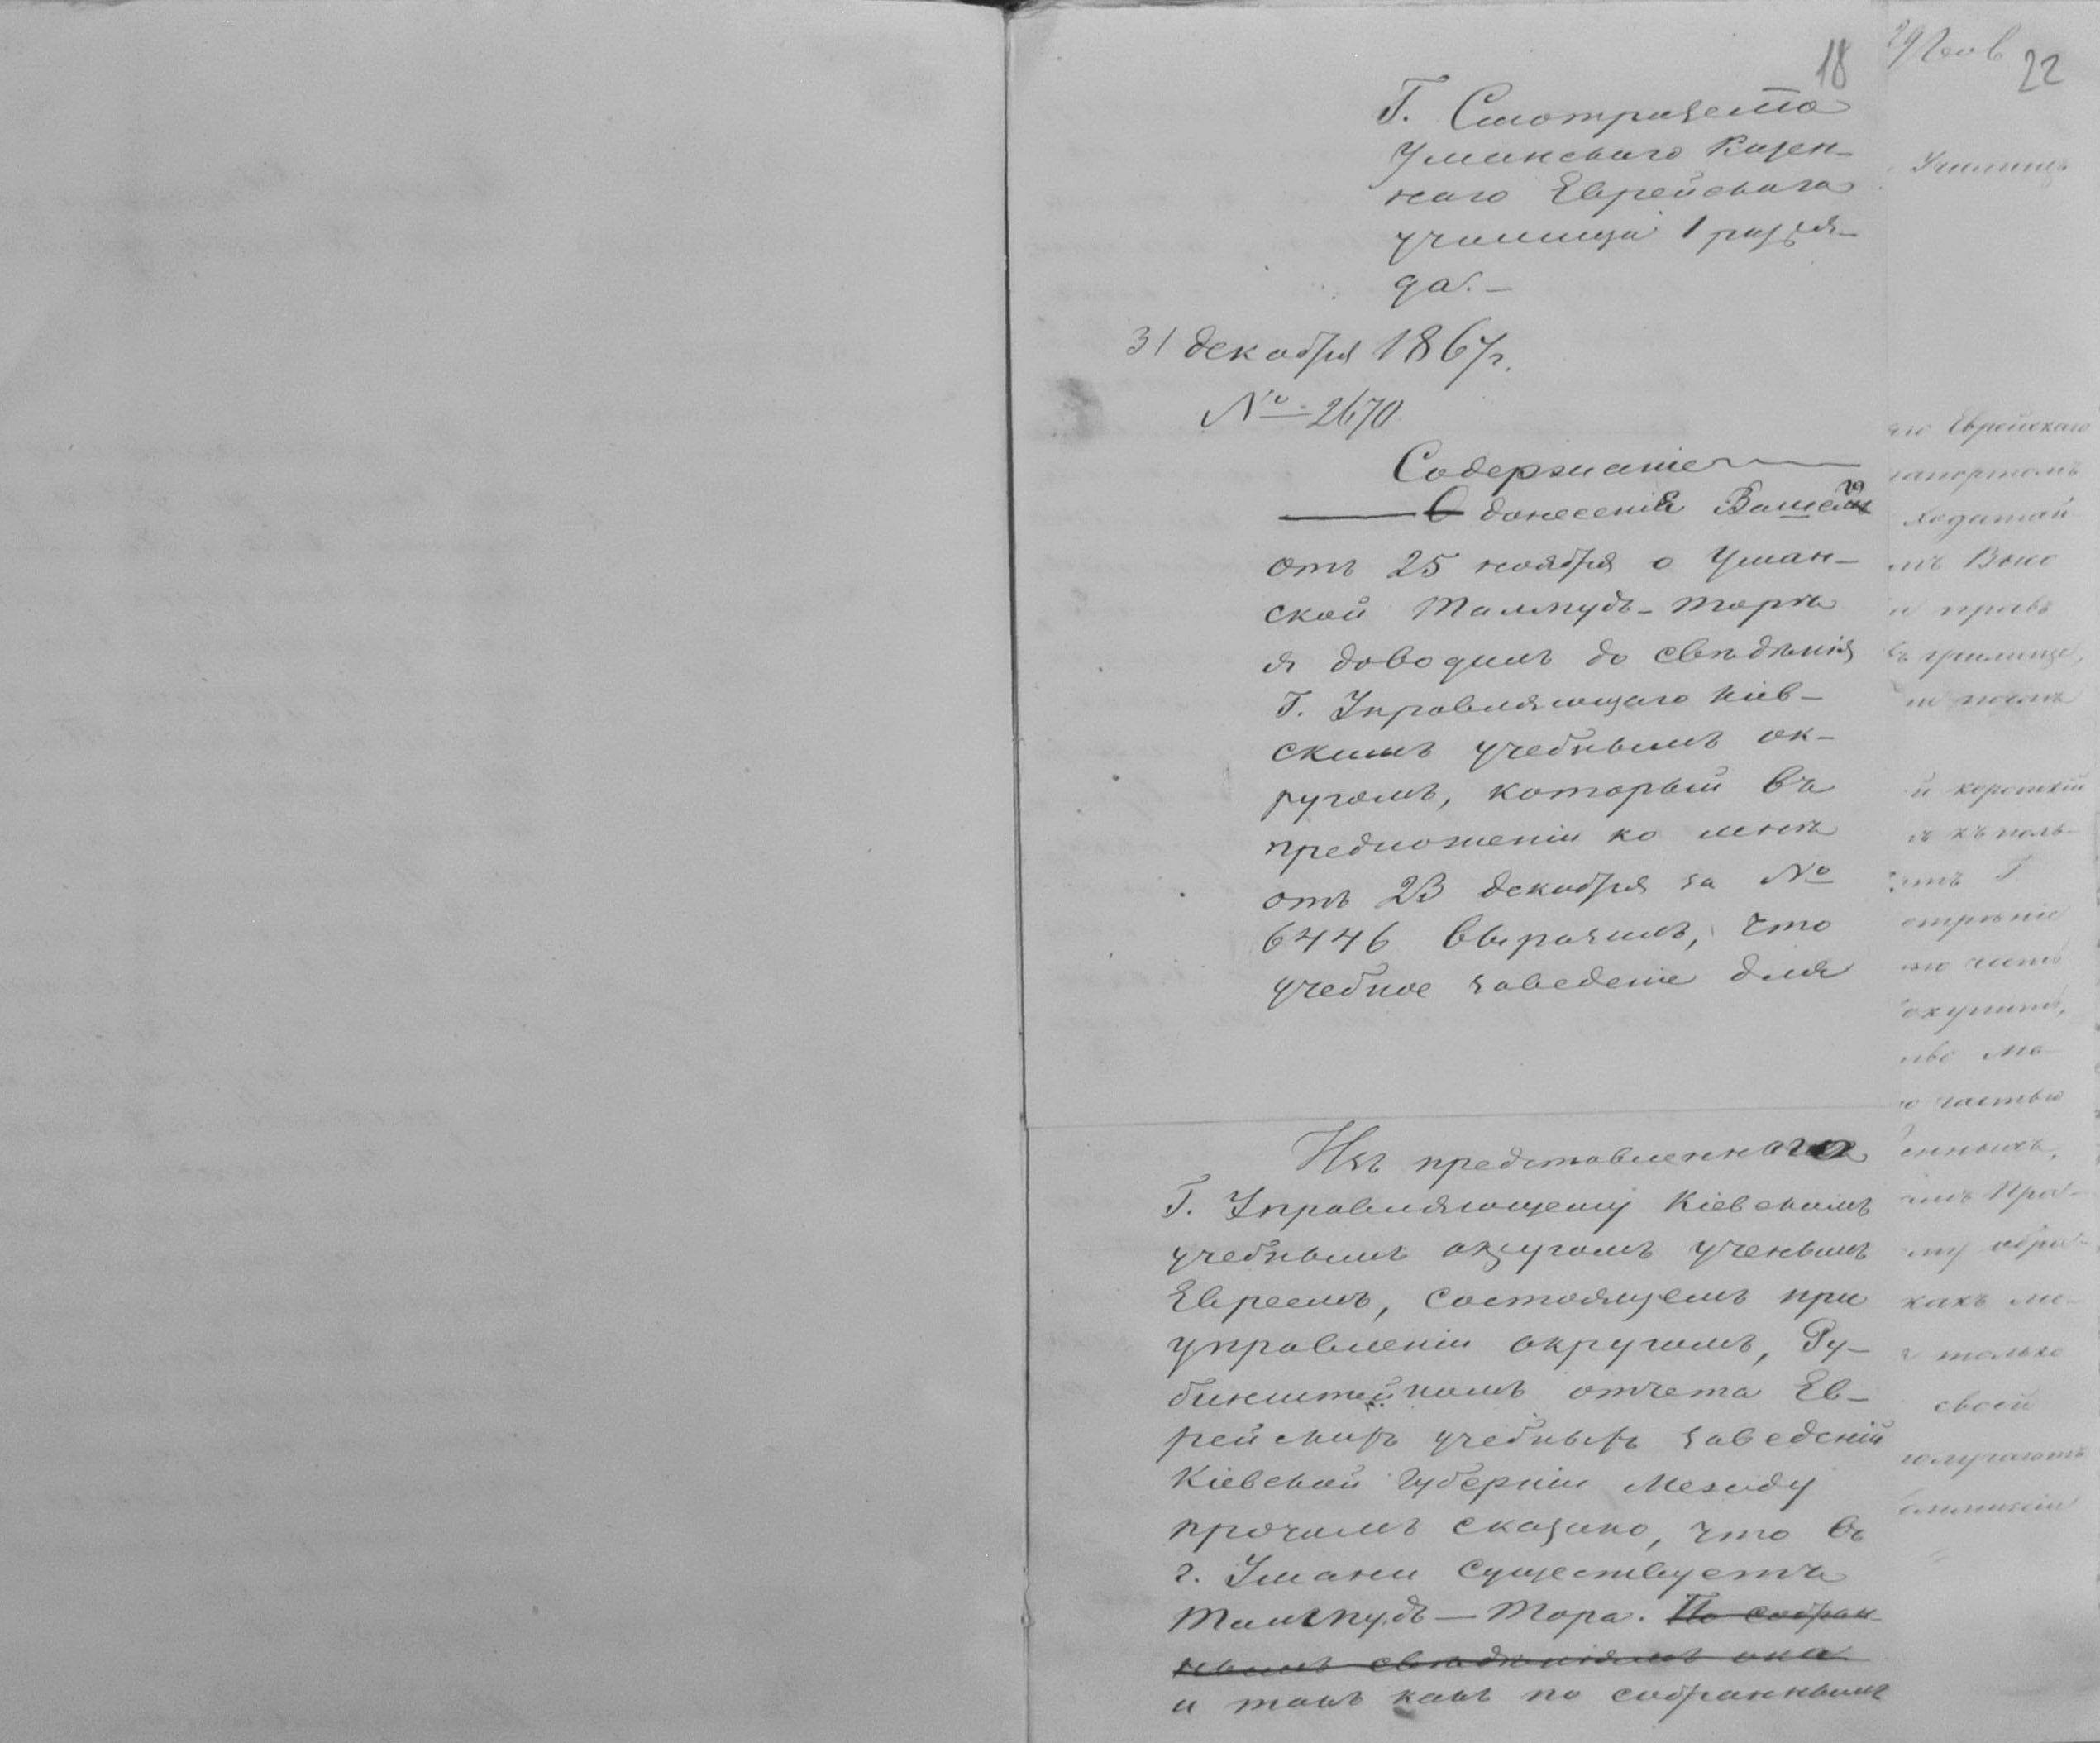 18
Г. Смотрителю
Уманскаго Казен-
наго Еврейскаго
училища 1 разря-
да. –
31 декабря 1867 г.
№ 2670
Содержаніе
О донесеніе Вашего
отъ 25 ноября о Уман-
ской Талмудъ-Торѣ
я доводилъ до свѣдѣнія
Г. Управляющаго Кіев-
скимъ учебнымъ ок-
ругомъ, который въ
предложеніи ко мнѣ
отъ 23 декабря за №
6446 выразилъ, что
учебное заведеніе для
Изъ представленнаго
Г. Управляющему Кіевскимъ
учебнымъ округомъ ученымъ
Евреемъ, состоящемъ при
управленіи округомъ, Ру-
бинштейномъ отчета Ев-
рейскихъ учебныхъ заведеній
Кіевской Губерніи между
прочимъ сказано, что въ
г. Умани существуетъ
Талмудъ – Тора. По собран-
нымъ свѣдѣніямъ она
и такъ какъ по собраннымъ
22
Училищъ
Еврейскаго
рапортомъ
ходатай
правъ
въ училище,
короткій
частью
какъ
только
своей
получаютъ